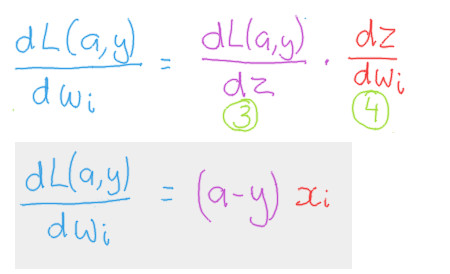 dL(a,y)/dwi = dL(a,y)/dz · dz/dwi
3 4
dL(a,y)/dwi = (a-y) xi